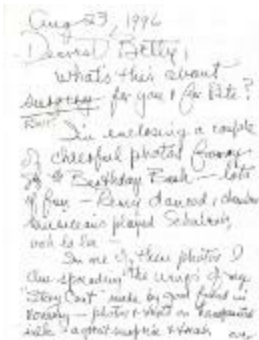 Aug 23, 1996
Dearest Betty,
What's this about
surgery for you & for Pete?
I'm enclosing a couple
of cheerful photos from
Birthday Bash — lots
of fun — danced,
musicians played
ooh la la —
In one of these photos I
am spreading the wings of my
"Story Coat" made by good friend in
— photos & what on
silk - a great surprise &
over